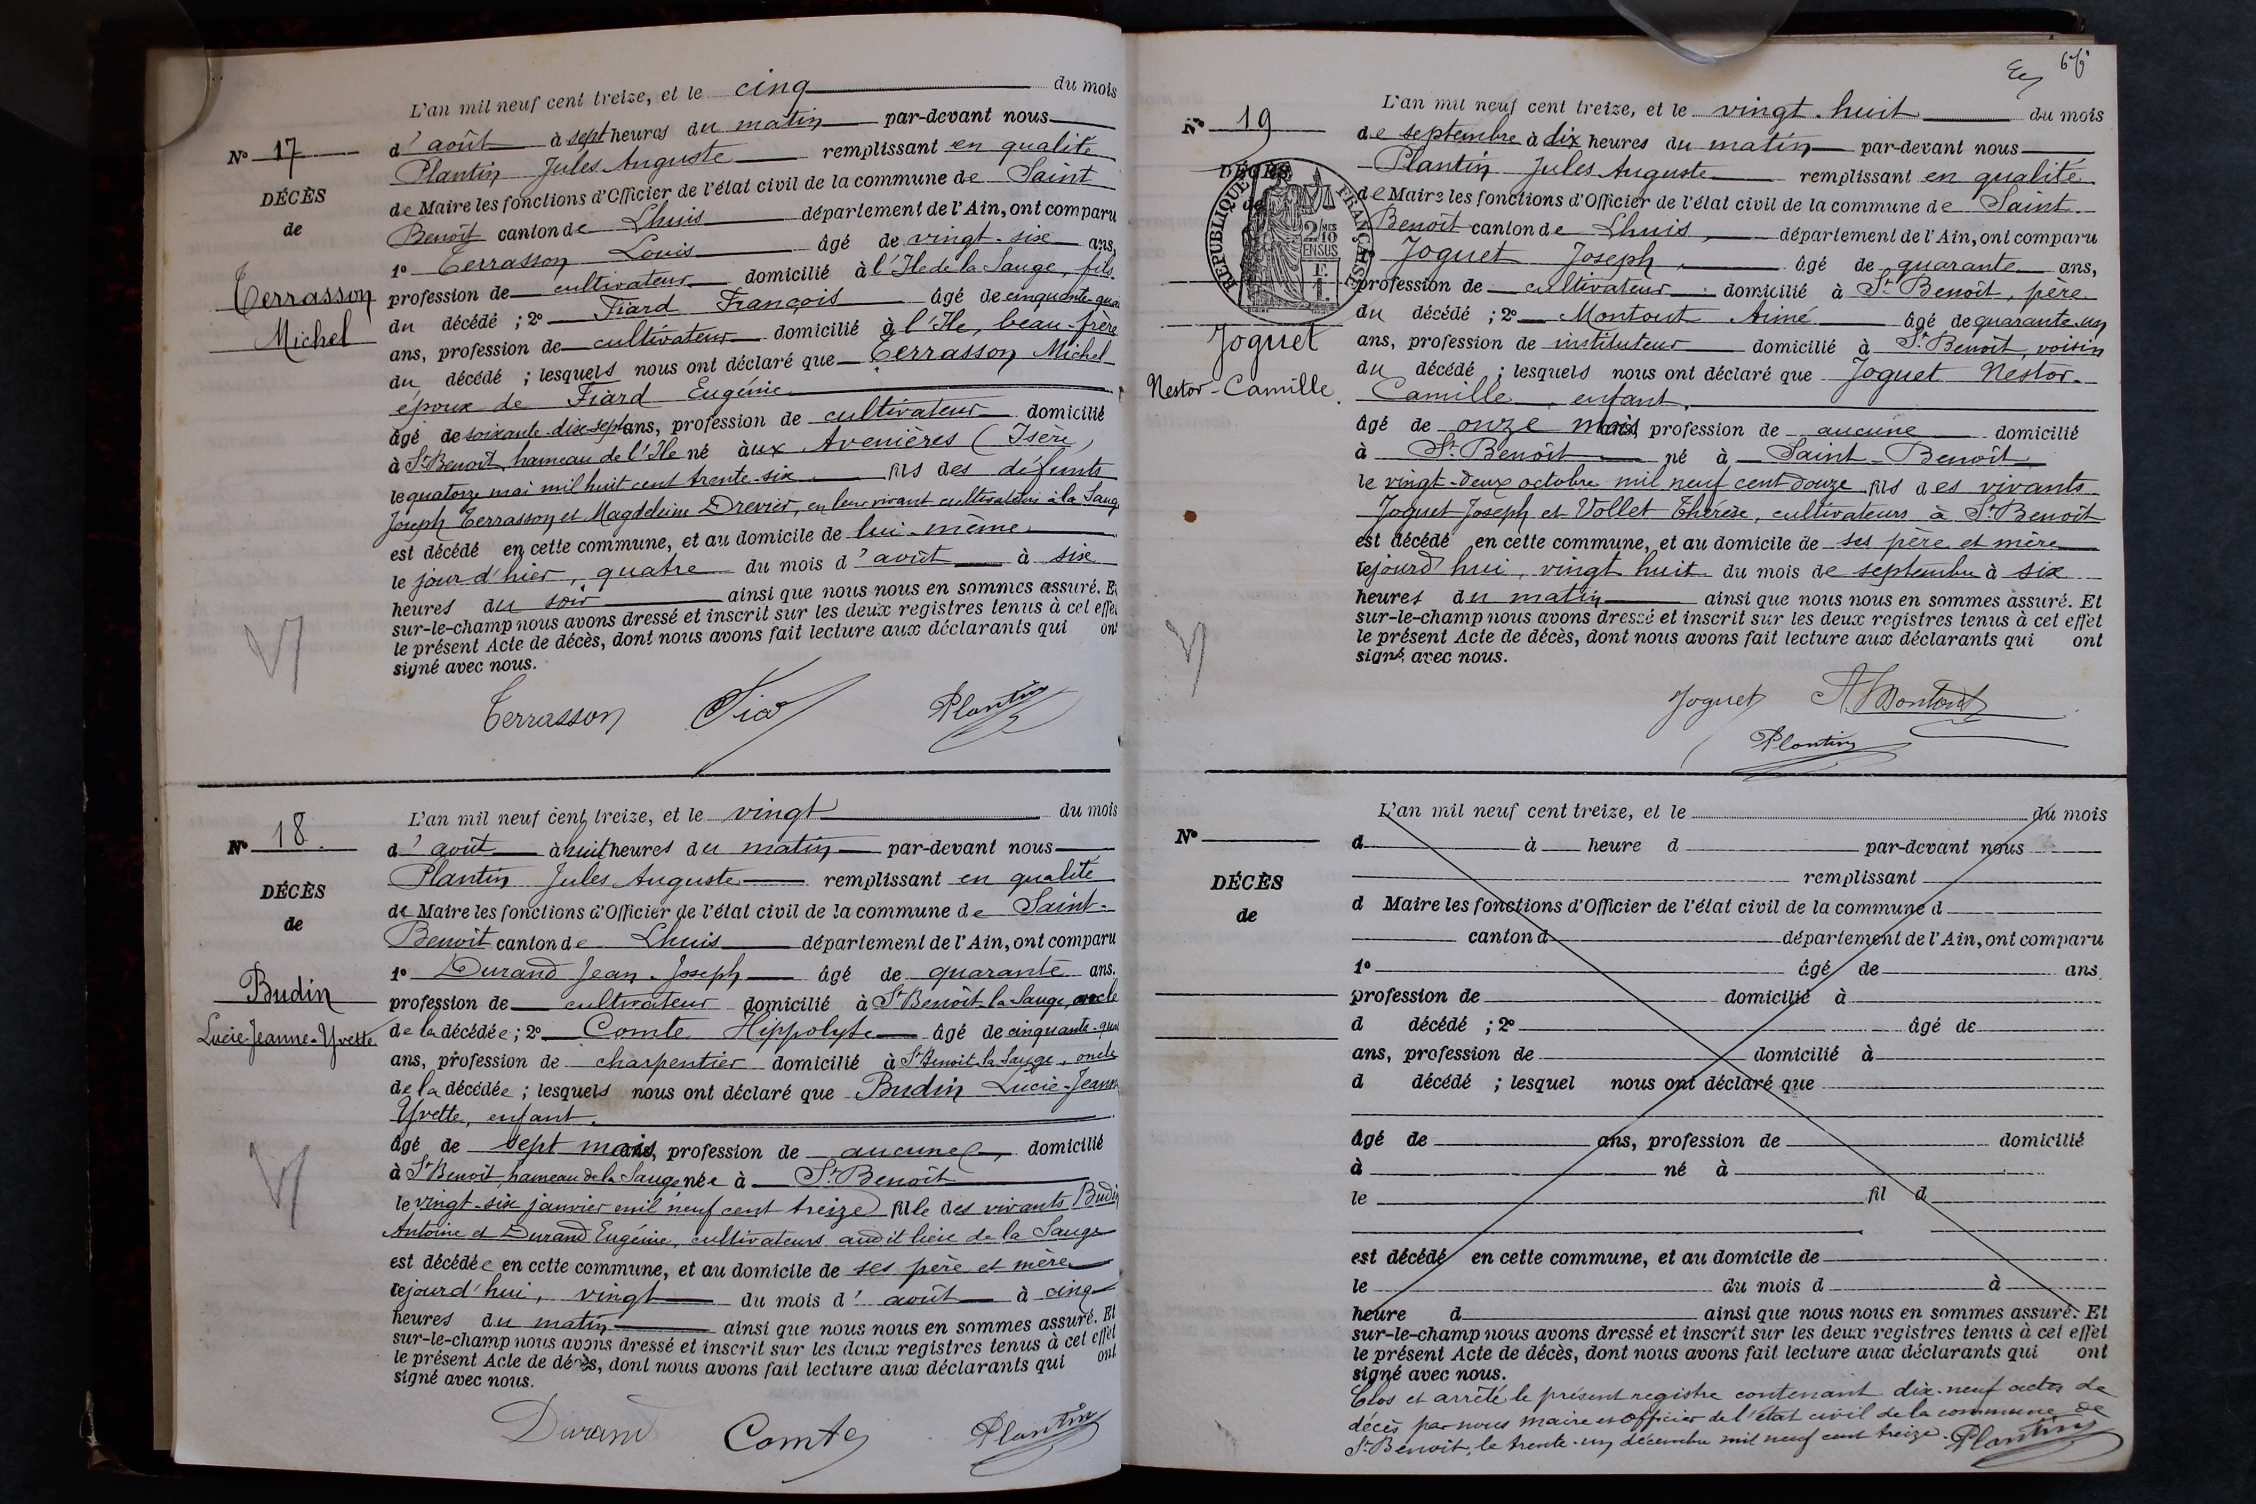 L'an mil neuf cent treize, et le cinq du mois
d'août à sept heures du matin par-devant nous
Plantin Jules Auguste remplissant en qualité
de Maire les fonctions d'Officier de l'état civil de la commune de Saint
Benoît canton de Lhuis département de l'Ain, ont comparu
1º Terrasson Louis âgé de vingt-six ans,
profession de cultivateur domicilié à l'Ile de la Sauge, fils
du décédé ; 2º Fiard François âgé de cinquante-qua
ans, profession de cultivateur domicilié à l'Ile, beau-frère
du décédé ; lesquels nous ont déclaré que Terrasson Michel
époux de Fiard Eugénie
âgé de soixante-dix-sept ans, profession de cultivateur domicilié
à St Benoît, hameau de l'Ile né aux Avenières (Isère)
le quatorze mai mil huit cent trente-six fils des défunts
Joseph Terrasson et Magdeleine Drevier, en leur vivant cultivateurs à la Sauge
est décédé en cette commune, et au domicile de lui-même
le jour d'hier, quatre du mois d'août à six
heures du soir ainsi que nous nous en sommes assuré. Et
sur-le-champ nous avons dressé et inscrit sur les deux registres tenus à cet effet
le présent Acte de décès, dont nous avons fait lecture aux déclarants qui ont
signé avec nous.
Terrasson Plantin
Nº 17
DÉCÈS
de
Terrasson
Michel
L'an mil neuf cent treize, et le vingt du mois
d'août à huit heures du matin par-devant nous
Plantin Jules Auguste remplissant en qualité
de Maire les fonctions d'Officier de l'état civil de la commune de Saint-
Benoît canton de Lhuis département de l'Ain, ont comparu
1º Durand Jean-Joseph âgé de quarante ans.
profession de cultivateur domicilié à St Benoît-la-Sauge, oncle
de la décédée ; 2º Comte Hippolyte âgé de cinquante-qua
ans, profession de charpentier domicilié à St Benoît-la-Sauge, oncle
de la décédée ; lesquels nous ont déclaré que Budin Lucie-Jeanne
Yvette, enfant.
âgé de sept mois, profession de aucune, domicilié
à St Benoît, hameau de la Sauge née à St Benoît
le vingt-six janvier mil neuf cent treize fille des vivants Budin
Antoine et Durand Eugénie, cultivateurs audit lieu de la Sauge
est décédée en cette commune, et au domicile de ses père et mère
lejourd'hui, vingt du mois d'août à cinq
heures du matin ainsi que nous nous en sommes assuré. Et
sur-le-champ nous avons dressé et inscrit sur les deux registres tenus à cet effet
le présent Acte de décès, dont nous avons fait lecture aux déclarants qui ont
signé avec nous.
Durand Comte Plantin
Nº 18.
DÉCÈS
de
Budin
Lucie-Jeanne-Yvette
L'an mil neuf cent treize, et le vingt-huit du mois
de septembre à dix heures du matin par-devant nous
Plantin Jules Auguste remplissant en qualité
de Maire les fonctions d'Officier de l'état civil de la commune de Saint-
Benoît canton de Lhuis, département de l'Ain, ont comparu
Joguet Joseph, âgé de quarante ans,
profession de cultivateur domicilié à St Benoît, père
du décédé ; 2º Montout Aimé âgé de quarante-un
ans, profession de instituteur domicilié à St Benoît, voisin
du décédé ; lesquels nous ont déclaré que Joguet Nestor-
Camille, enfant.
âgé de onze mois, profession de aucune domicilié
à St Benoît né à Saint-Benoît
le vingt-deux octobre mil neuf cent douze fils des vivants
Joguet Joseph et Vollet Thérèse, cultivateurs à St Benoît
est décédé en cette commune, et au domicile de ses père et mère
lejourd'hui, vingt huit du mois de septembre à six
heures du matin ainsi que nous nous en sommes assuré. Et
sur-le-champ nous avons dressé et inscrit sur les deux registres tenus à cet effet
le présent Acte de décès, dont nous avons fait lecture aux déclarants qui ont
signé avec nous.
Joguet A. Montout
Plantin
Nº 19
DÉCÈS
de
RÉPUBLIQUE FRANÇAISE
2/10
EN SUS
Joguet
Nestor-Camille.
L'an mil neuf cent treize, et le du mois
d à heure d par-devant nous
remplissant
d Maire les fonctions d'Officier de l'état civil de la commune d
canton d département de l'Ain, ont comparu
1º âgé de ans
profession de domicilié à
d décédé ; 2º âgé de
ans, profession de domicilié à
d décédé ; lesquel nous ont déclaré que
âgé de ans, profession de domicilié
à né à
le fil d
est décédé en cette commune, et au domicile de
le du mois d à
heure d ainsi que nous nous en sommes assuré. Et
sur-le-champ nous avons dressé et inscrit sur les deux registres tenus à cet effet
le présent Acte de décès, dont nous avons fait lecture aux déclarants qui ont
signé avec nous.
Clos et arrêté le présent registre contenant dix-neuf actes de
décès par nous maire et officier de l'état civil de la commune de
St Benoît, le trente-un décembre mil neuf cent treize. Plantin
Nº
DÉCÈS
de